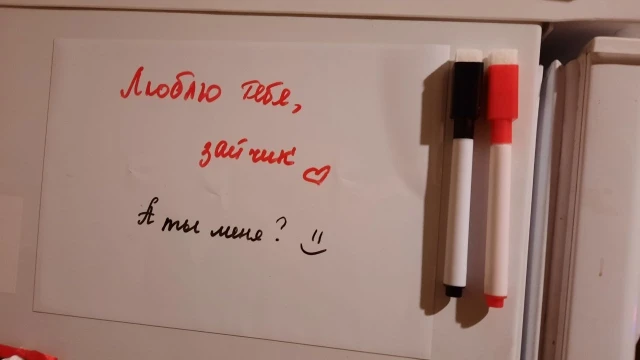 Люблю тебя,
зайчик
А ты меня?